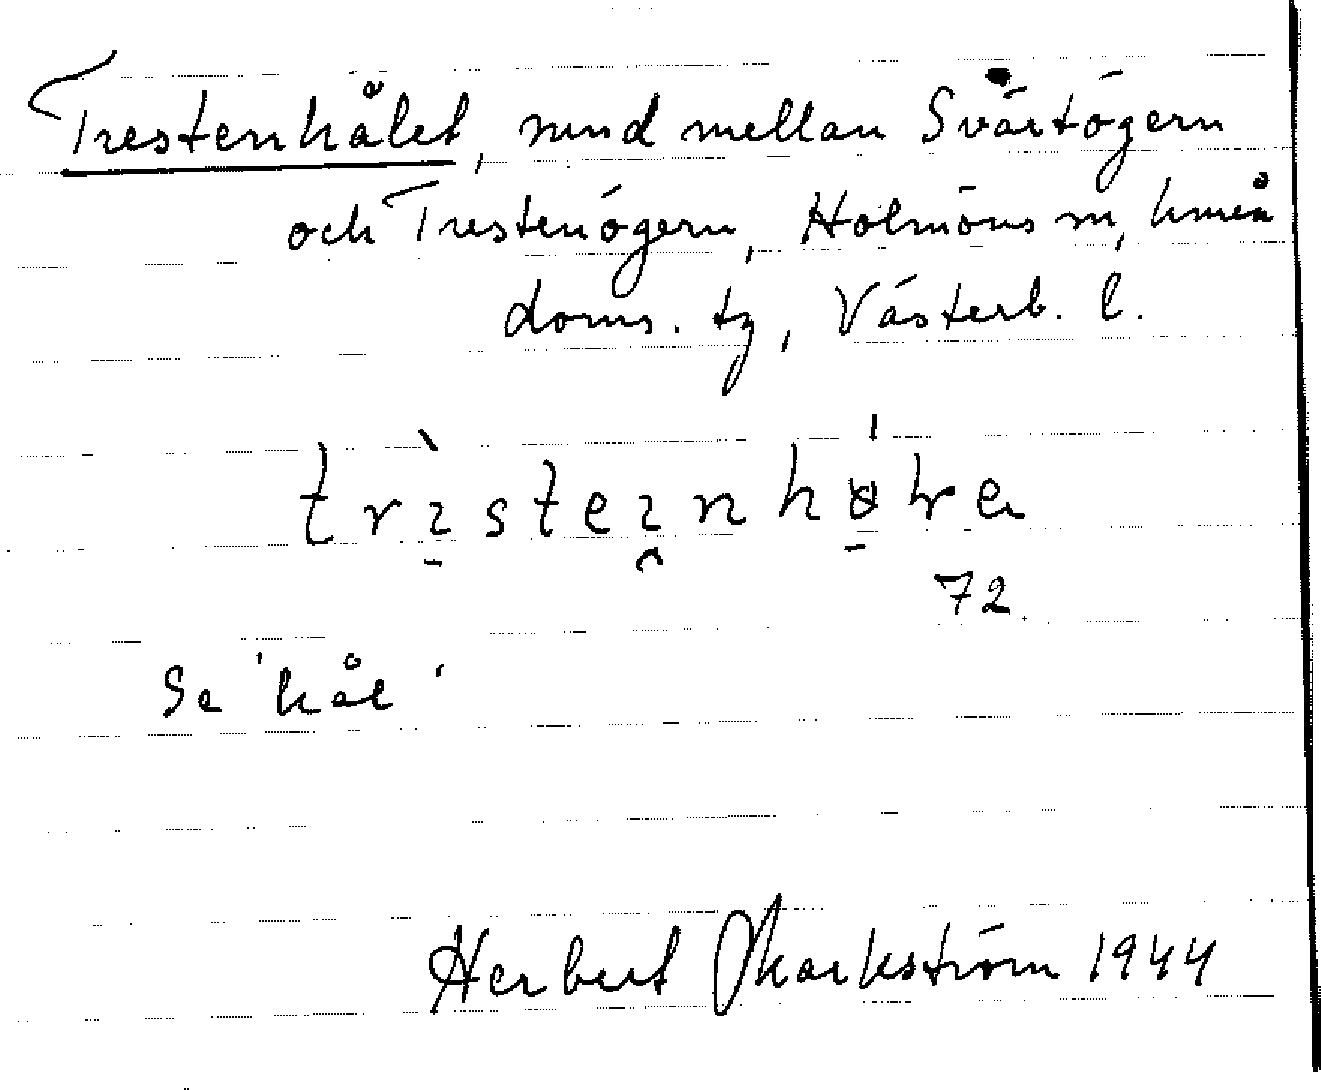 Trestenhålet, sund mellan Svärtögern
och Trestenögern, Holmöns sn, Umeå
doms. tg, Västerb. l.
72
Se 'hål'
Herbert Markström 1944